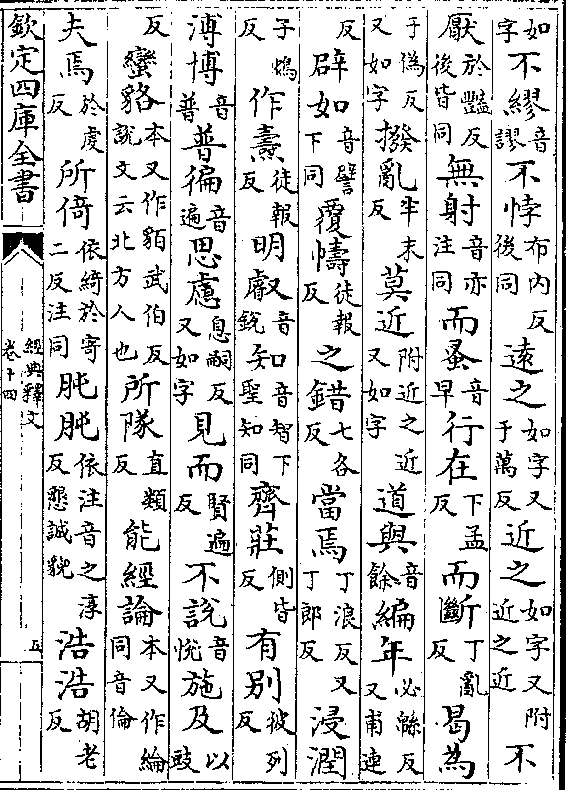 如字不繆音謬不悖布内反後同遠之如字又于萬反近之如字又附近之近不
厭於豔反後皆同無射音亦注同而蚤音早行在下孟反而斷丁亂反曷為
于偽反又如字撥亂半末反莫近附近之近又如字道與音餘編年必緜反又甫連
反辟如音譬下同覆幬徒報反之錯七各反當焉丁浪反又丁郎反浸潤
子鴆反作燾徒報反明叡音鋭知音智下聖知同齊莊側皆反有别彼列反
溥博音普普徧音遍思慮息嗣反又如字見而賢遍反不説音悦施及以豉
反蠻貉本又作貊武伯反説文云北方人也所隊直類反能經論本又作綸同音倫
夫焉於虔反所倚依綺於寄二反注同肫肫依注音之淳反懇誠貌浩浩胡老反
欽定四庫全書
經典釋文
卷十四
五